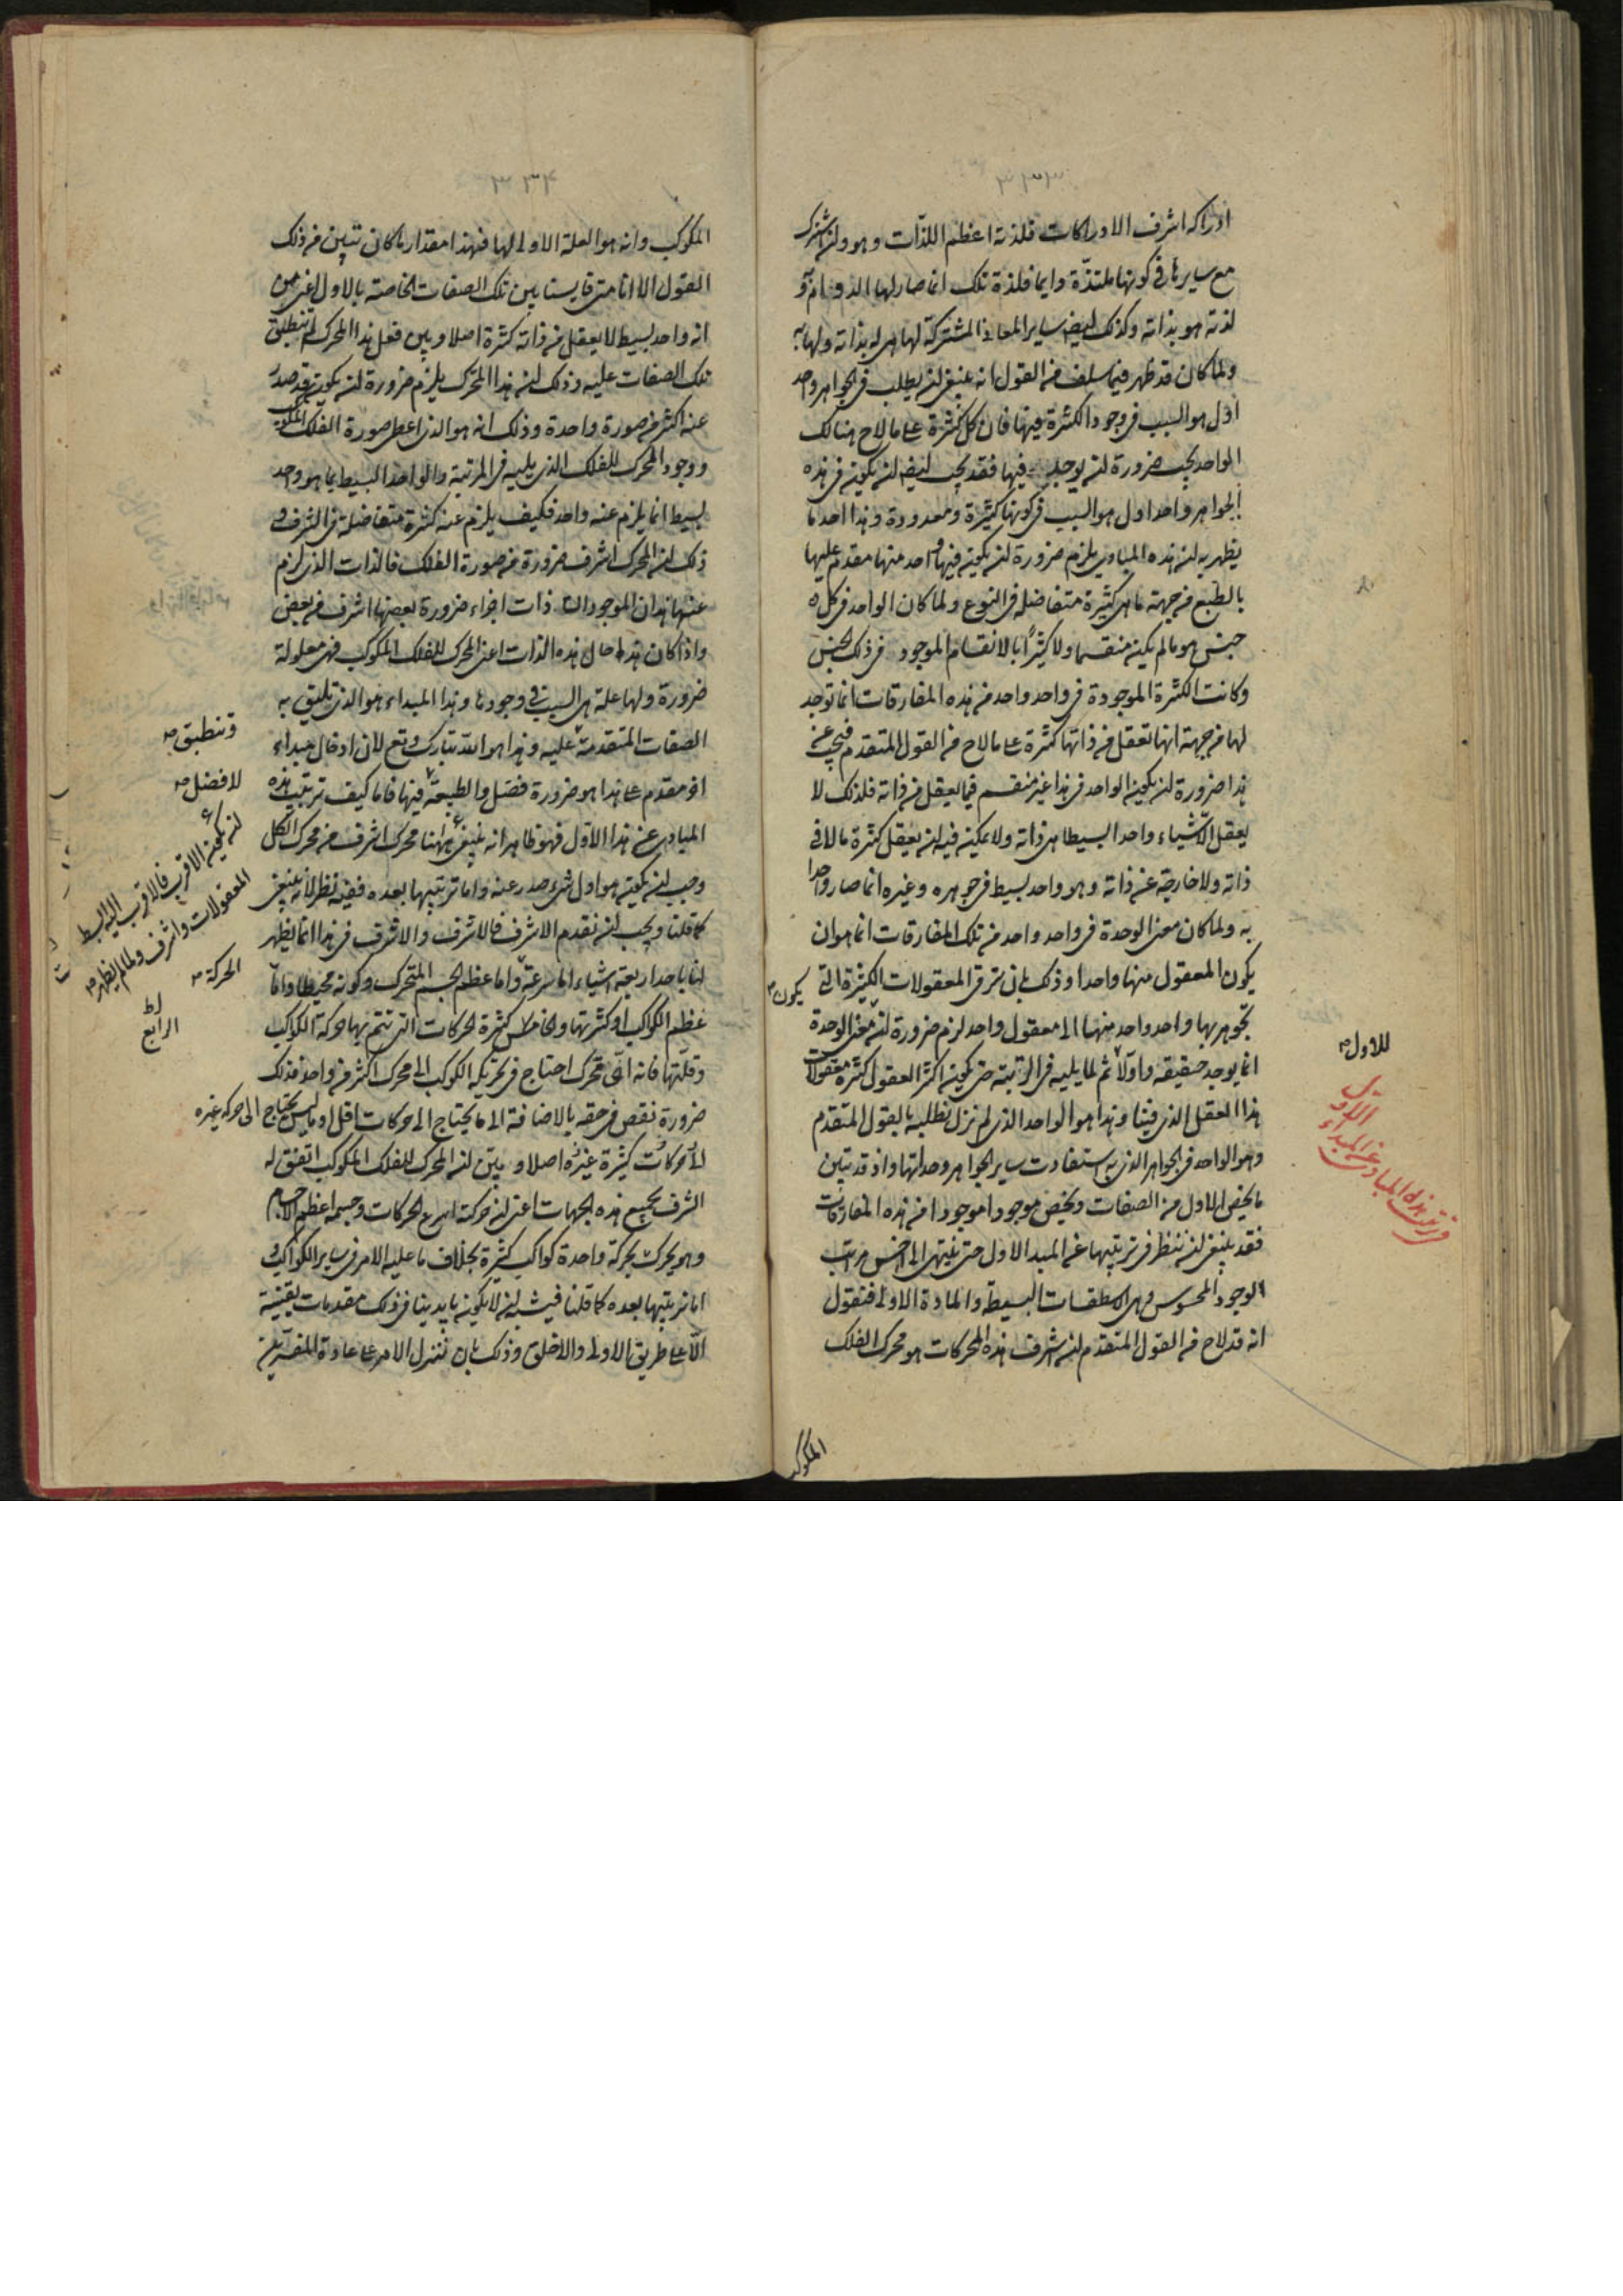 ٣٣٣
ادراكه اشرف الادراكات فلذته اعظم اللذات وهو وان اشترك
مع سايرها فى كونها ملتذة وايما فلذة تلك انما صار لها الدوام و
لذته هو بذاته وكذلك ايضا ساير المعانى المشتركة لها هى له بذاته ولها به
ولما كان قد ظهر فيما سلف من القول انه ينبغى ان يطلب فى الجواهر واحد
اول هو السبب فى وجود الكثرة فيها فان كل كثرة على ما لاح هنالك
الواحد يجب ضرورة ان يوجد فيها فقد يجب ايضا ان يكون فى هذه
الجواهر واحد اول هو السبب فى كونها كثيرة ومعدودة وهذا احد ما
يظهر به ان هذه المبادى يلزم ضرورة ان يكون فيها واحد منها مقدم عليها
بالطبع من جهة ما هى كثيرة متفاضلة فى النوع ولما كان الواحد فى كل
جنس هو ما لم يكن منقسما ولا كثيرا بالانقسام الموجود فى ذلك الجنس
وكانت الكثرة الموجودة فى واحد واحد من هذه المفارقات انما توجد
لها من جهة انها تعقل من ذاتها كثرة على ما لاح من القول المتقدم فيجب عن
هذا ضرورة ان يكون الواحد فى هذا غير منقسم فيما يعقل من ذاته فلذلك لا
يعقل الا شياء واحدا بسيطا هى ذاته ولا يمكن فيه ان يعقل كثرة ما لا فى
ذاته ولا خارجة عن ذاته وهو واحد بسيط فى جوهره وغيره انما صار واحدا
به ولما كان معنى الوحدة فى واحد واحد من تلك المفارقات انما هو ان
يكون المعقول منها واحدا وذلك بان ترقى المعقولات الكثيرة التى
يكون
تجوهر بها واحد واحد منها الى معقول واحد لزم ضرورة ان معنى الوحدة
انما يوجد حقيقة واولا ثم لما يليه فى الرتبة حتى يكون اكثر العقول كثرة معقولات
هذا العقل الذى فينا وهذا هو الواحد الذى لم نزل نطلبه بالقول المتقدم
وهو الواحد فى الجواهر الذى به استفادت ساير الجواهر وحدتها واذ قد تبين
ما يخص الاول من الصفات ويخص موجودا موجودا من هذه المفارقات
فقد ينبغى ان ننظر فى ترتيبها عن المبدا الاول حتى ننتهى الى اخس مراتب
الوجود المحسوس وهى الاسطقسات البسيطة والمادة الاولى فنقول
انه قد لاح من القول المتقدم ان اشرف هذه المحركات هو محرك الفلك
المكوكب
للاول
فى ترتيب هذه المبادى عن المبداء الاول
٣٣۴
المكوكب وانه هو العلة الاولى لها فهذا مقدار ما كان تبين من ذلك
القول الا انا متى قايسنا بين تلك الصفات الخاصة بالاول اعنى من
انه واحد بسيط لا يعقل من ذاته كثرة اصلا وبين فعل هذا المحرك لم تنطبق
تلك الصفات عليه وذلك ان هذا المحرك يلزم ضرورة ان يكون قد صدر
عنه اكثر من صورة واحدة وذلك انه هو الذى اعطى صورة الفلك المكوكب
ووجود المحرك للفلك الذى يليه فى المرتبة والواحد البسيط بما هو واحد
بسيط انما يلزم عنه واحد فكيف يلزم عنه كثرة متفاضلة فى الشرف و
ذلك ان المحرك اشرف ضرورة من صورة الفلك فالذات الذى لزم
عنها هذان الموجودان ذات اجزاء ضرورة بعضها اشرف من بعض
واذا كان هذا حال هذه الذات اعنى المحرك للفلك المكوكب فهى معلولة
ضرورة ولها علة هى السبب فى وجودها وهذا المبداء هو الذى تليق به
الصفات المتقدمة عليه وهذا هو الله تبارك وتع لان ادخال مبداء
اخر مقدم على هذا هو ضرورة فضل والطبيعة فيها فاما كيف ترتيب هذه
المبادى عن هذا الاول فهو ظاهر انه ينبغى ههنا محرك اشرف من محرك الكل
وجب ان يكون هو اول شىء صدر عنه واما ترتيبها بعده ففيه نظر لانه ينبغى
كما قلنا ويجب ان نقدم الاشرف فالاشرف والاشرف فى هذا انما يظهر
لنا باحد اربعة اشياء اما سرعة واما عظم الجسم المتحرك وكونه محيطا واما
عظم الكواكب او كثرتها والخامس كثرة الحركات التى تتم بها حركة الكواكب
وقلتها فانه اى متحرك احتاج فى تحريكه الكوكب الى محرك اكثر من واحد فذلك
ضرورة نقص فى حقه بالاضافة الى ما يحتاج الى حركات اقل او ما ليس يحتاج الى حركة غيره
الى حركات كثيرة غيره اصلا وبين ان المحرك للفلك المكوكب اتفق له
الشرف بجميع هذه الجهات اعنى ان حركته اسرع الحركات وجسمه اعظم الاجسام
وهو يحرك بحركة واحدة كواكب كثيرة بخلاف ما عليه الامر فى ساير الكواكب و
اما ترتيبها بعده كما قلنا فيشبه ان لا يكون بايدينا فى ذلك مقدمات يقينية
الا على طريق الاولى والاخلق وذلك بان ننزل الامر على عادة المفسرين
وتنطبق
لا فضل
ان يكون الاقرب فالاقرب اليه البسط
المعقولات واشرف ولما لم يظهر
الحركة
الرابع